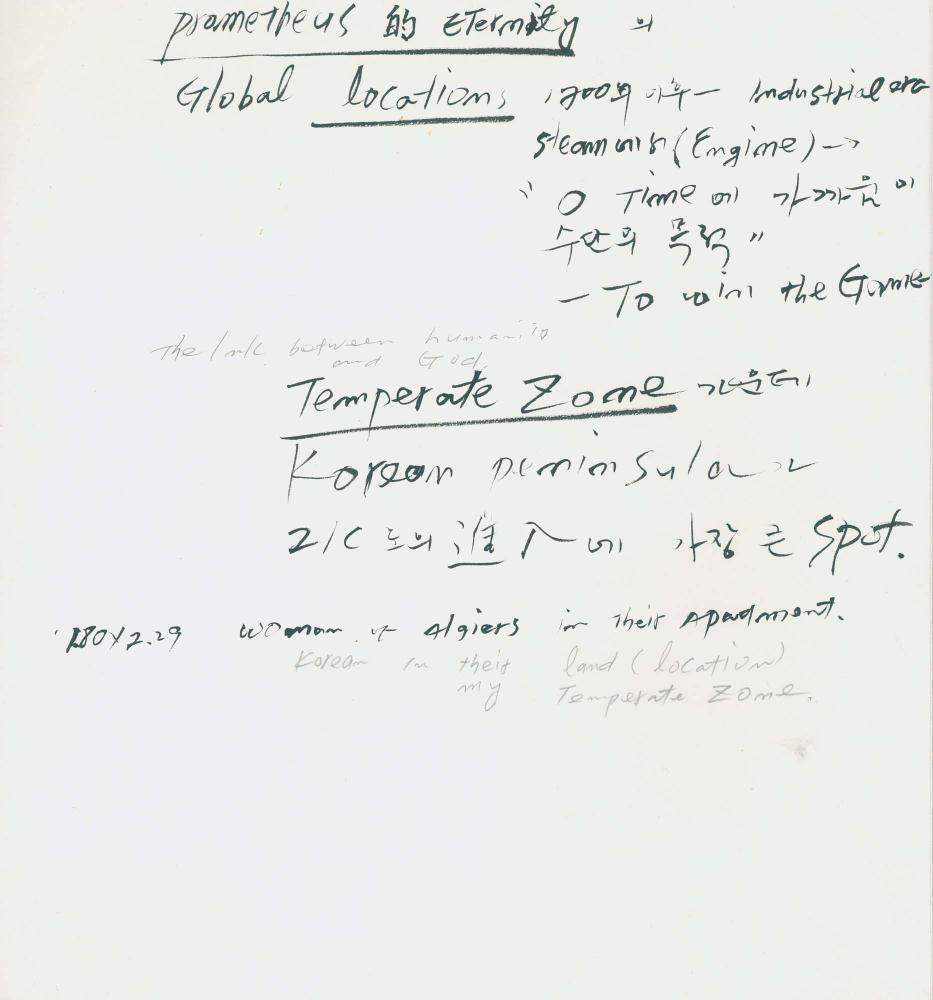 prometheus 的 Eternity 의
Global locations 1700의 이후 — Industrial era
steam 에서 (Engine) →
" O Time 에 가까움 이
수단의 목적 "
— To win the Game
The link between humanity
and God.
Temperate Zone 가운데
Korean peninsula
21C 도의 進入에 가장 큰 Spot.
180X2.29 woman of Algiers in their Apartment.
Korean in their land (location)
my Temperate Zone.